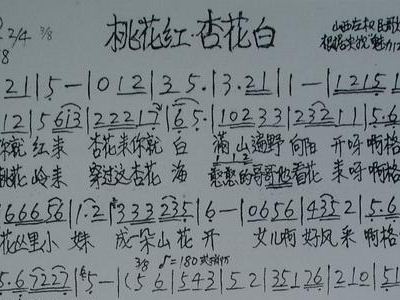 2/4 3/8 桃花红·杏花白 山西左权民歌
根据
2 1 | 5 - | 0 1 2 | 3 5. | 3. 2 1 | 1 - | 1 2 1 5 1
1 2 | 5 6 1 3 | 2 2 2 1 7 | 6 5. | 1 0 2 3 3 | 2 3 2 1 1 | 5. 6
你就 红来 杏花来你就 白 满山遍野向阳 开呀啊格
桃花岭来 穿过这杏花 海 憨憨的哥哥他看花 来呀啊格
1 6 6 6 5 6 | 1. 2 | 3 3 3 2 3 5 | 6 - | 0 6 5 6 | 4 3 5 2 | 5. 6
花丛里小 妹 成一朵山花 开 女儿啊 好风采 啊格
5. 6 7 2 2 7 | 5 - | ( 5 6 | 5 4 3 | 5 2 | 3 5 1 7 6 | 2 1 0 | 5 1
3/8 ♪=180